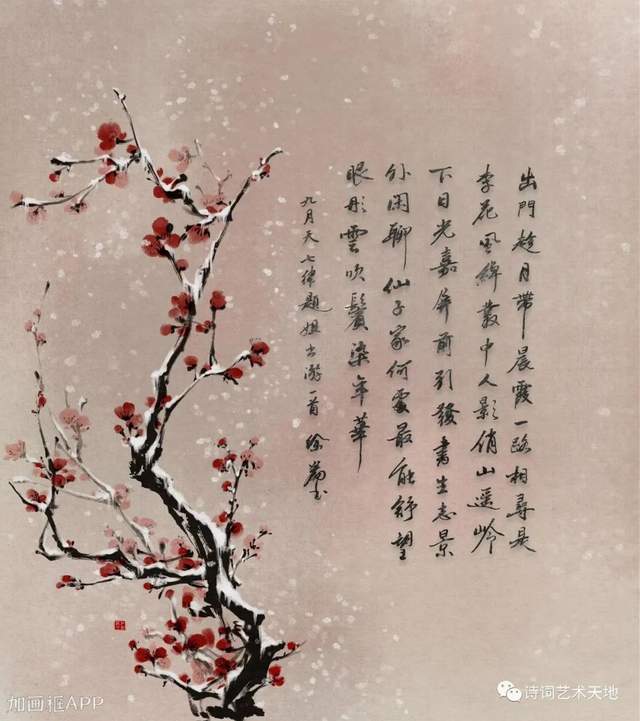 出門趁月帶晨霞一路相尋是
李花風綽叢中人影俏山遥岭
下日光嘉奔前引發書生志景
外闲聊仙子家何處最能舒望
眼彤雲吹鬢染年華
九月天七律題姐出游一首 徐
加画框APP
诗词艺术天地